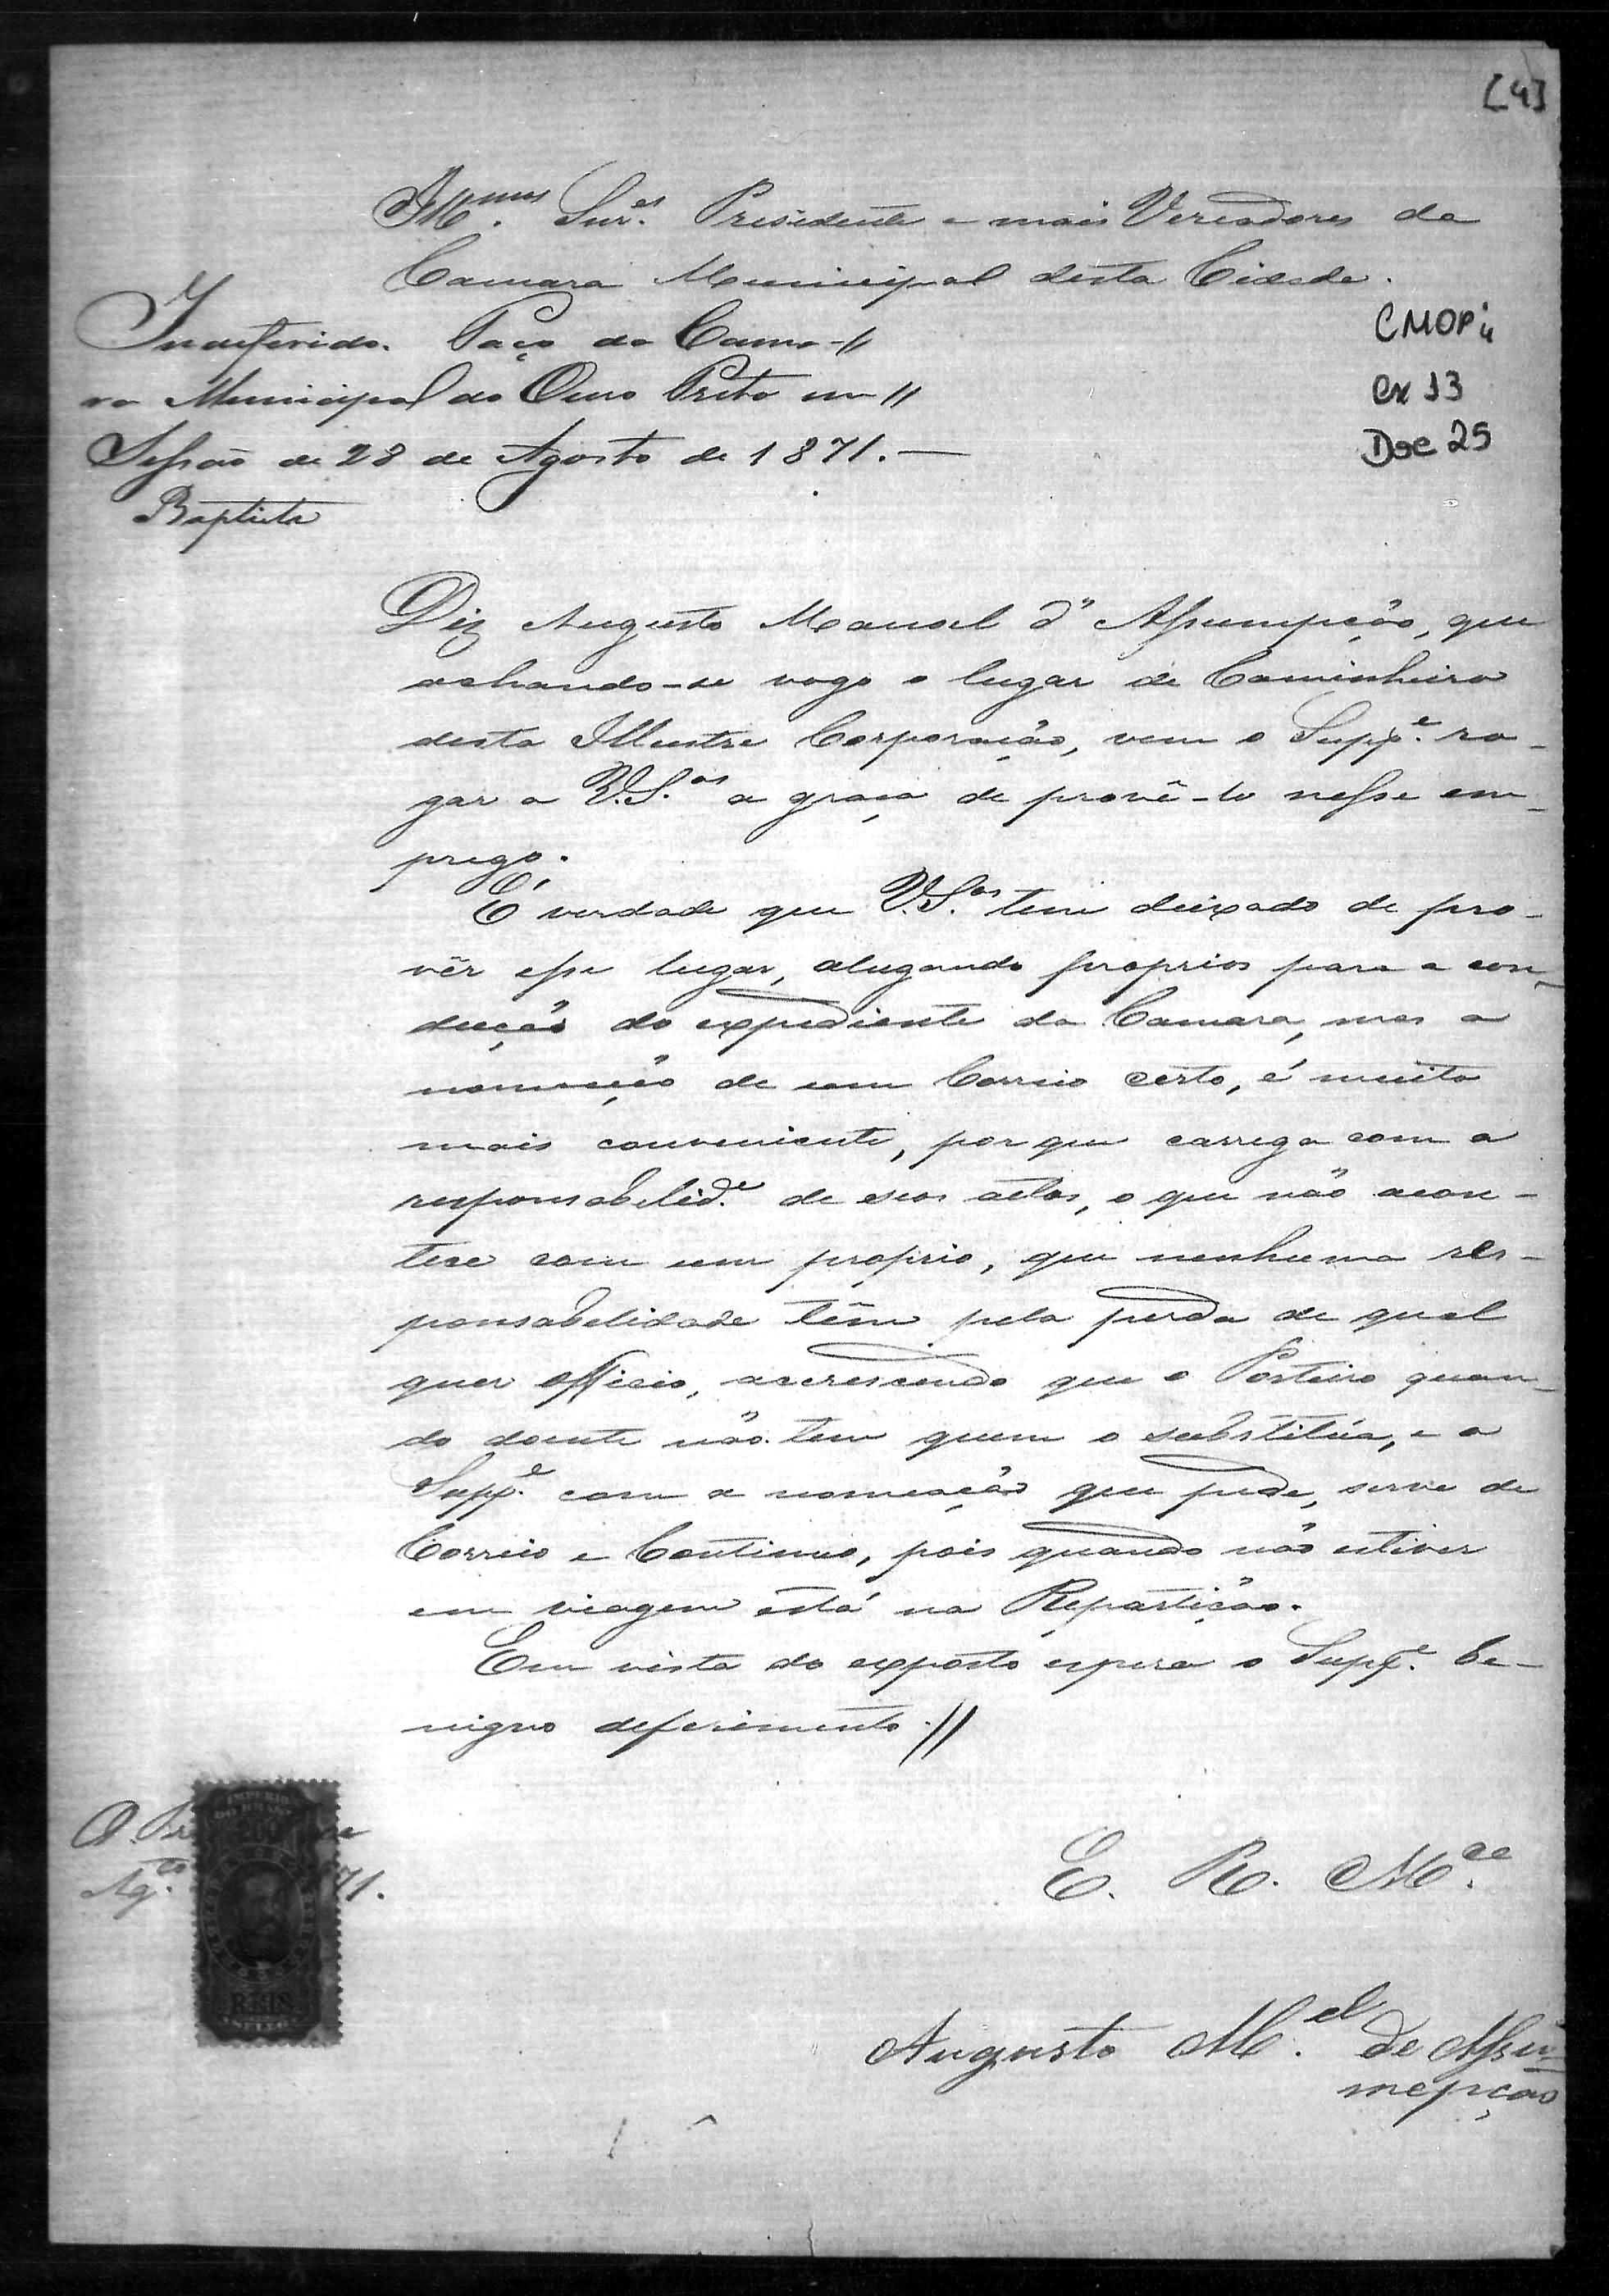 [4]
Illmos. Snres. Presidente e mais Vereadores da
Camara Municipal desta Cidade.
Indeferido. Paço da Cama-//
ra Municipal do Ouro Preto em //
Sessão de 28 de Agosto de 1871.—
Baptista
CMOP
cx 13
Doc 25
Diz Augusto Manoel d'Assumpção, que
achando-se vago o lugar de Caminheiro
desta Illustre Corporação, vem o Suppe. ro-
gar a V.S.as a graça de provê-lo nesse em-
prego.
É verdade que V.S.as tem deixado de pro-
vêr esse lugar, alugando proprios para a con-
ducção do expediente da Camara, mas a
nomeação de um Correio certo, é muito
mais conveniente, por que carrega com a
responsabelide. de seos actos, o que não acon-
tece com um proprio, que nenhuma res-
ponsabelidade têm pela perda de qual
quer officio, accrescendo que o Porteiro quan-
do doente não tem quem o substitúa, e o
Suppe. com a nomeação que pede, serve de
Correio e Continuo, pois quando não estiver
em viagem está na Repartição.
Em vista do exposto espera o Suppe. be-
nigno deferimento.//
O. Pr
Agto. 71.
IMPERIO
DO BRASIL
200
REIS
E. R. Mce.
Augusto Mel. de Assu-
mepção